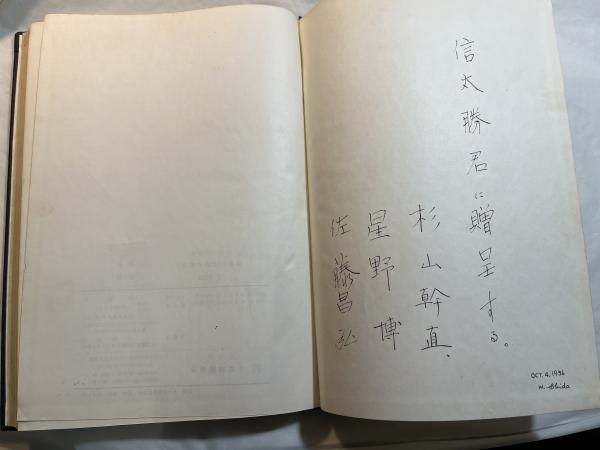 信太勝君に贈呈する。
杉山幹直、
星野博
佐藤昌弘
OCT. 4. 1956